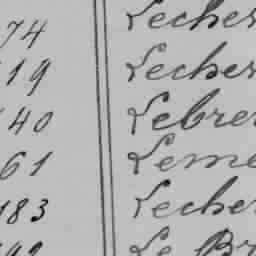 74 Lecher
19 Lecher
40 Lebre
61 Leme
183 Lecher
Le Br